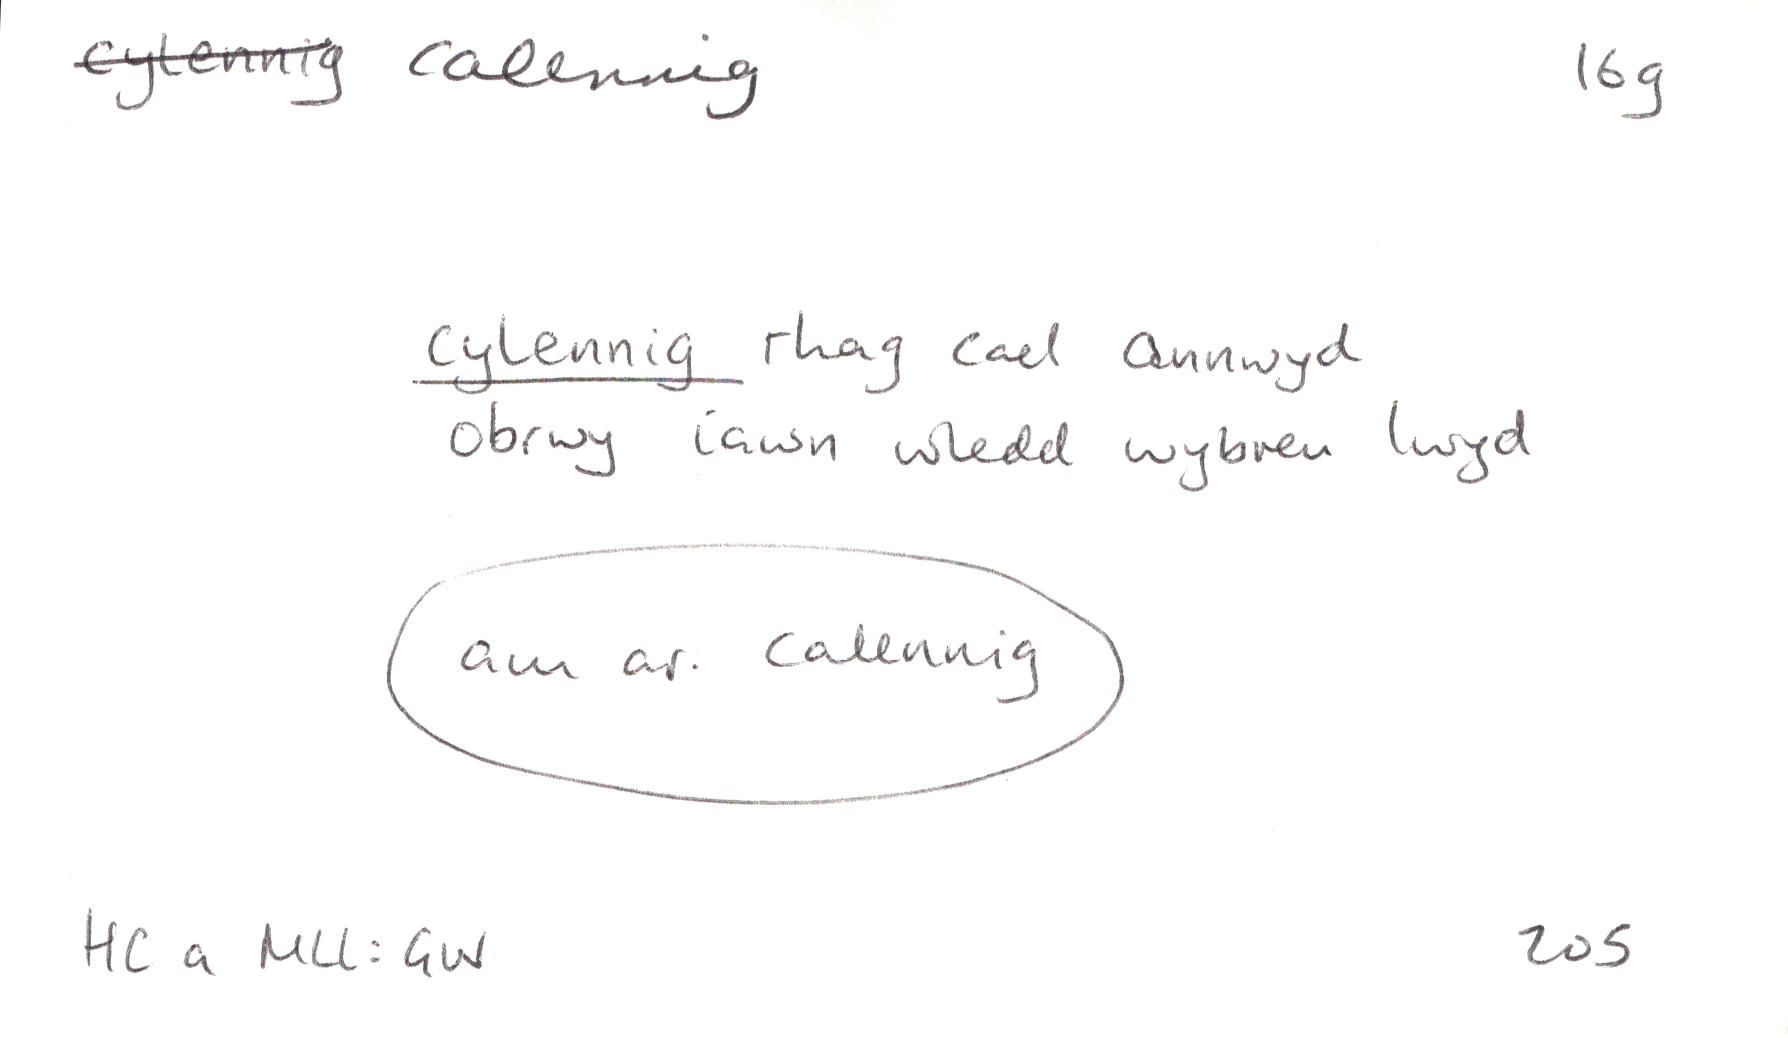 cylennig calennig 16g
cylennig rhag cael annwyd
obrwy iawn wledd wybren lwyd
am ar. calennig
HC a MLl: GW 205